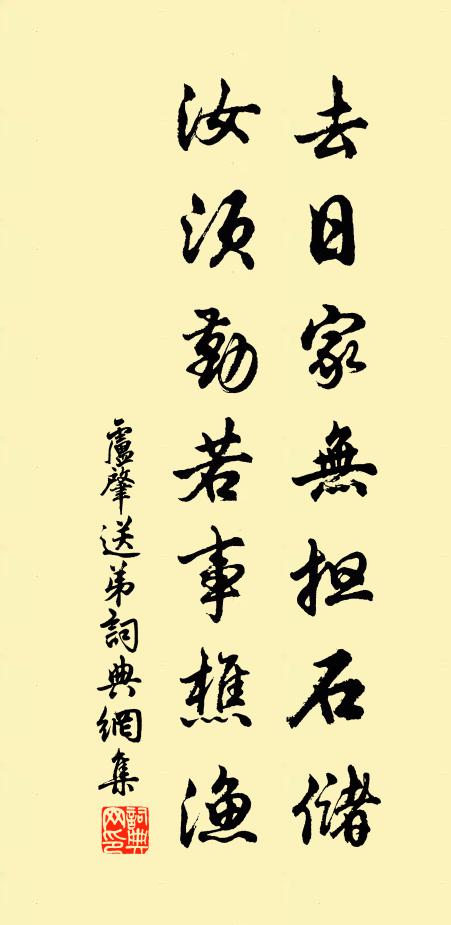 去日家無担石儲
汝須勤若事樵漁
盧肇送弟詞典網集
詞典網印